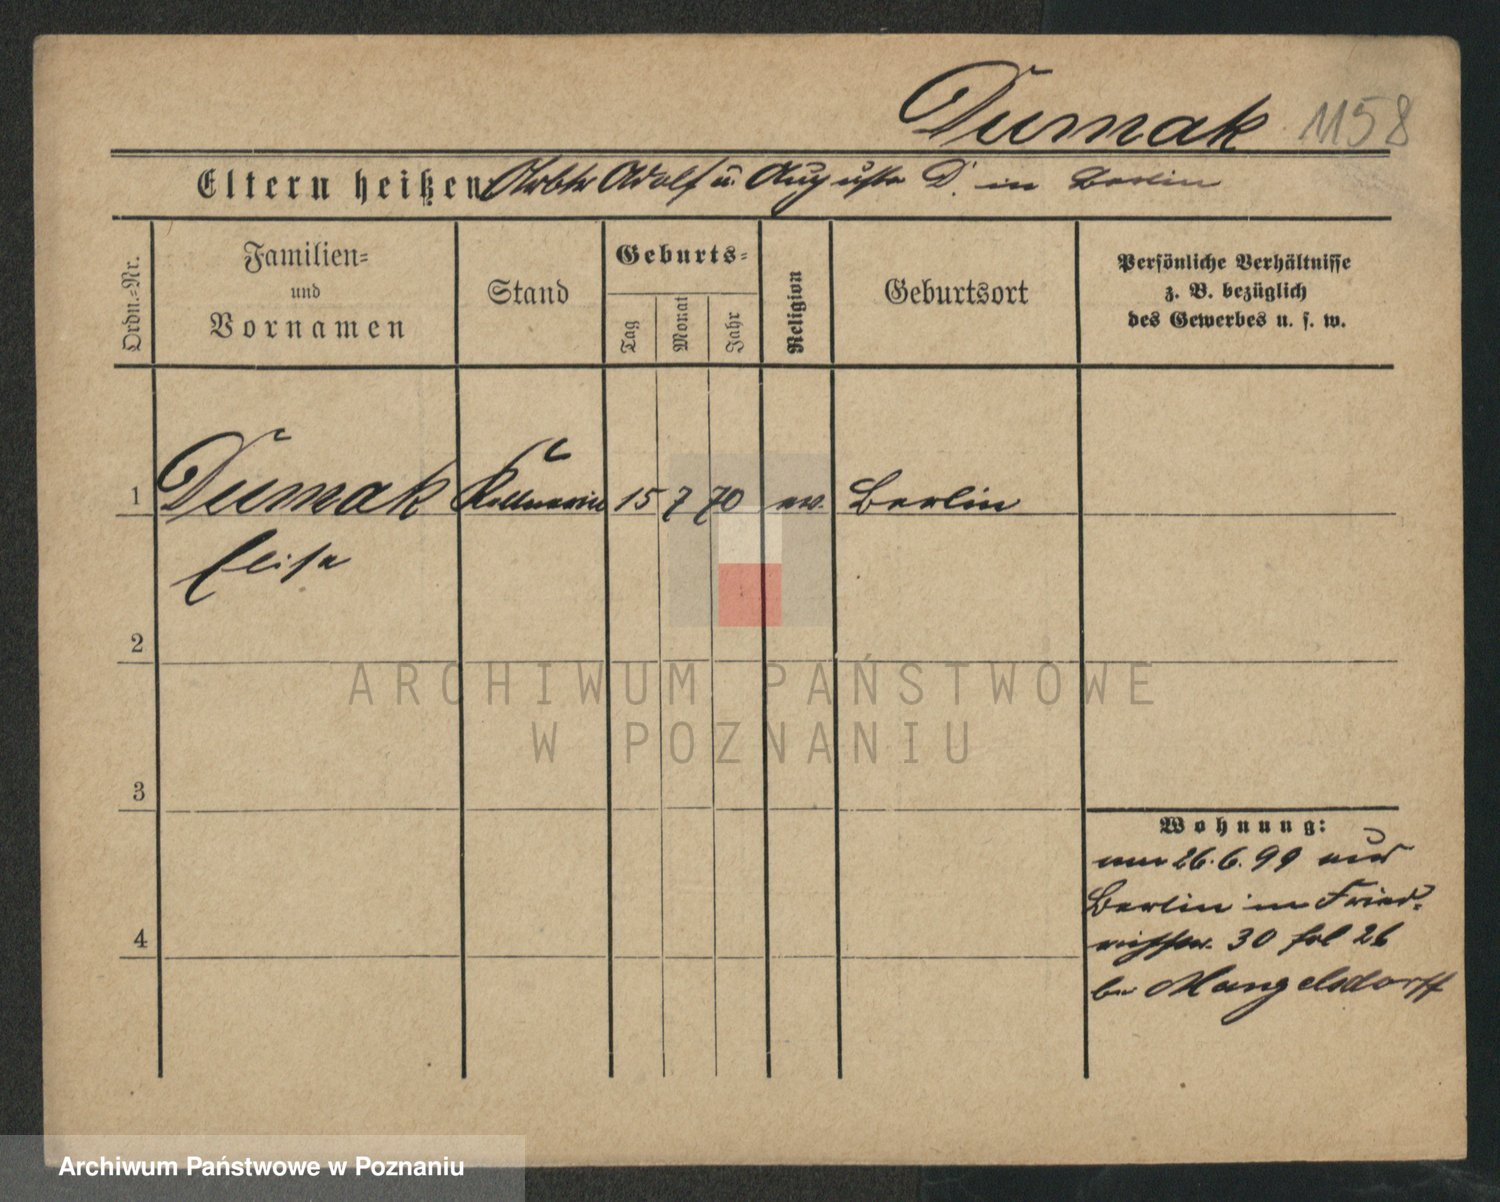 Dumak 1158
Eltern heißen Arbtr Adolf u. Auguste D. in Berlin
Ordn.-Nr.
Familien=
und
Vornamen
Stand
Geburts=
Tag
Monat
Jahr
Religion
Geburtsort
Persönliche Verhältnisse
z. B. bezüglich
des Gewerbes u. s. w.
1 Dumak Kellnerin 15 7 70 ev. Berlin
Elise
2
3
4
Wohnung:
am 26.6.99 aus
Berlin in Fried=
richstr. 30 fol 26
bei Mangelsdorff
ARCHIWUM PAŃSTWOWE
W POZNANIU
Archiwum Państwowe w Poznaniu